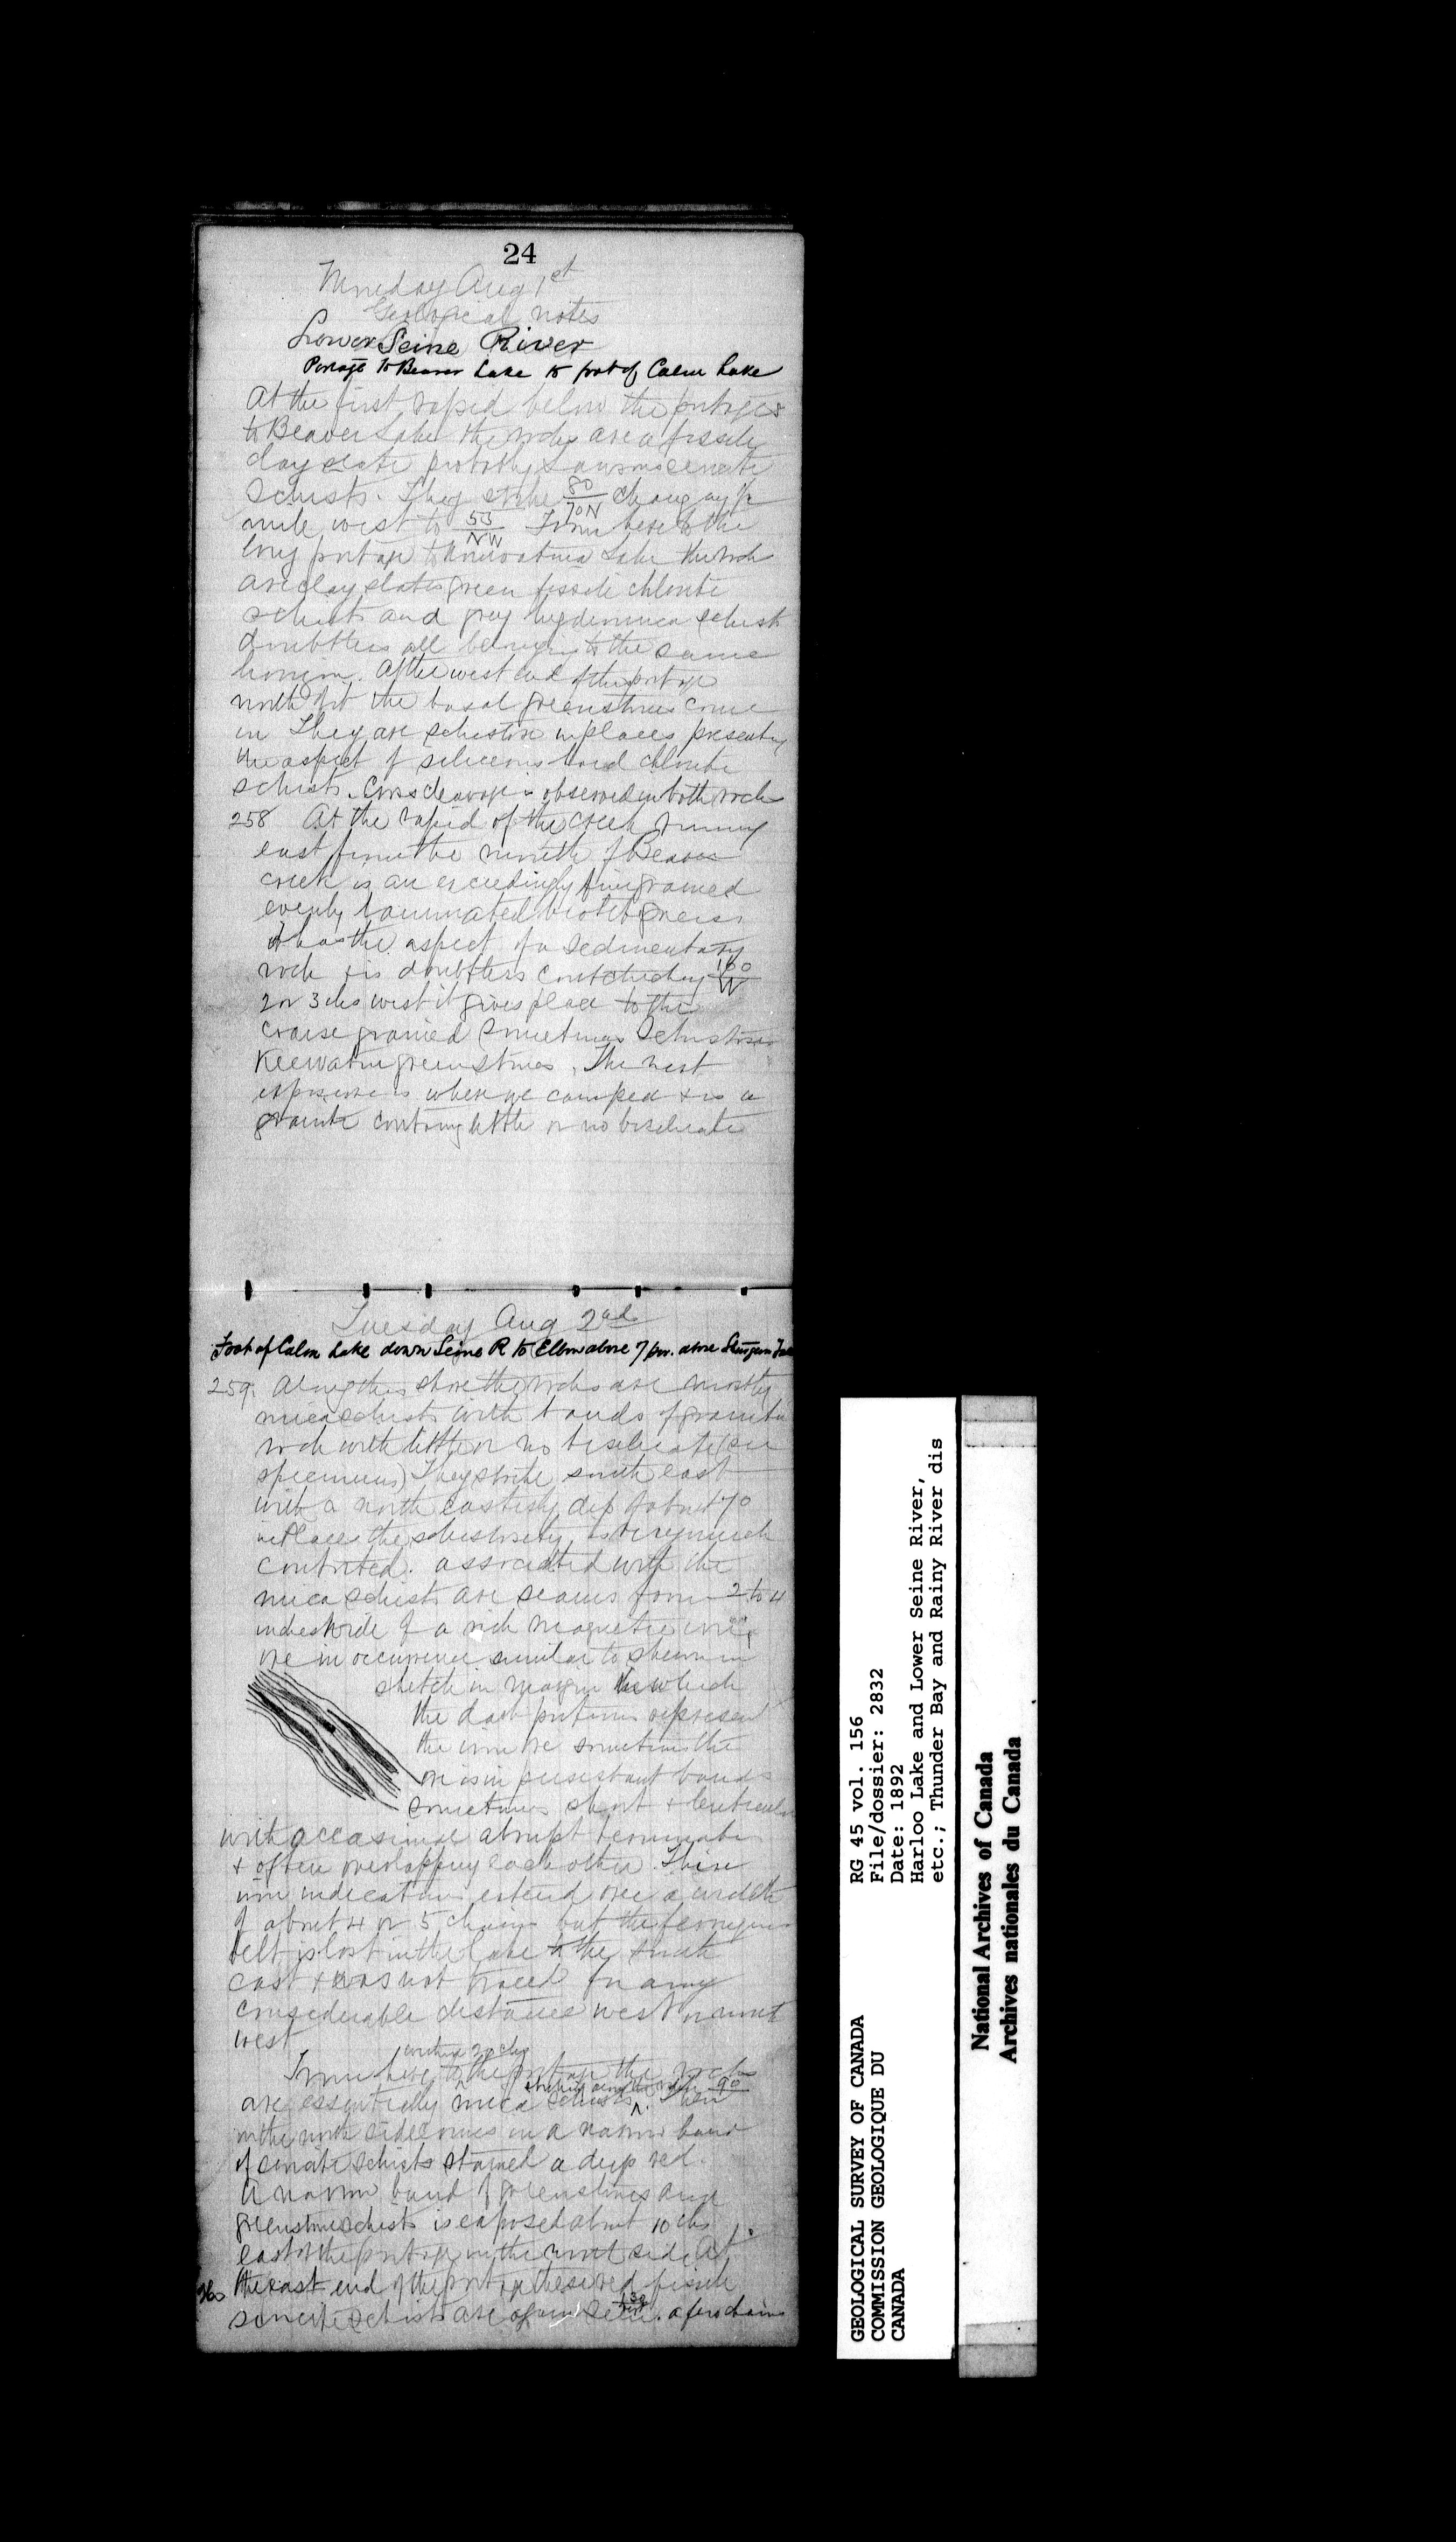 24
Monday Aug 1st
Geological notes
Lower Seine River
Portage to Beaver Lake to foot of Calm Lake
At the first rapid below the portages
to Beaver Lake the rocks are a fissile
clay slate probably
schists. They strike 80/70N changing 1/2
mile west to 53/NW From here to the
long portage to Lake the rock
are clay slates green fissile chlorite
schists and grey hydromica schist
doubtless all belonging to the same
horizon. At the west end of the portage
north of it the basal greenstones come
in They are schistose in places presenting
the aspect of siliceous hard chlorite
schists. Cross cleavage is observed in both rocks
258 At the rapid of the creek running
east from the mouth of Beaver
creek is an exceedingly fine grained
evenly laminated biotite gneiss
It has the aspect of a sedimentary
rock & is doubtless Coutchiching 160/W
2 or 3 chs west it gives place to the
coarse grained sometimes schistose
Keewatin greenstones. The next
exposure is where we camped & is a
granite containg little or no bisilicate
Tuesday Aug 2nd
Foot of Calm Lake down Seine R to Elbow above 7 por. above Sturgeon Falls
259. Along this shore the rocks are mostly
mica schists with bands of granite
rock with little or no bisilicate (see
specimens) They strike south east
with a north easterly dip of about 70
in places the schistosity is very much
contorted. associated with the
mica schists are seams from 2 to 4
inches wide of a rich magnetic iron
ore in occurrence similar to shewn in
sketch in margin in which
the dark portions represent
the iron ore sometimes the
ore is in persistant bands
sometimes short & lenticular
with occasional abrupt terminations
& often overlapping each other. These
iron indications extend over a width
of about 4 or 5 chains but the ferruginous
belt is lost in the lake to the south
east & was not traced for any
considerable distance west or north
west
within 20 chs
From here to the portage the rocks
striking 90
are essentially mica schists ^. Then
on the north side comes in a narrow band
of sericite schists stained a deep red
A narrow band of greenstones and
greenstone schists is exposed about 10 chs
east of the portage on the north side. At
260 the east end of the portage these red fissile
sericite schists are again seen. a few chains
GEOLOGICAL SURVEY OF CANADA
COMMISSION GEOLOGIQUE DU
CANADA
RG 45 vol. 156
File/dossier: 2832
Date: 1892
Harloo Lake and Lower Seine River,
etc.; Thunder Bay and Rainy River dis
National Archives of Canada
Archives nationales du Canada